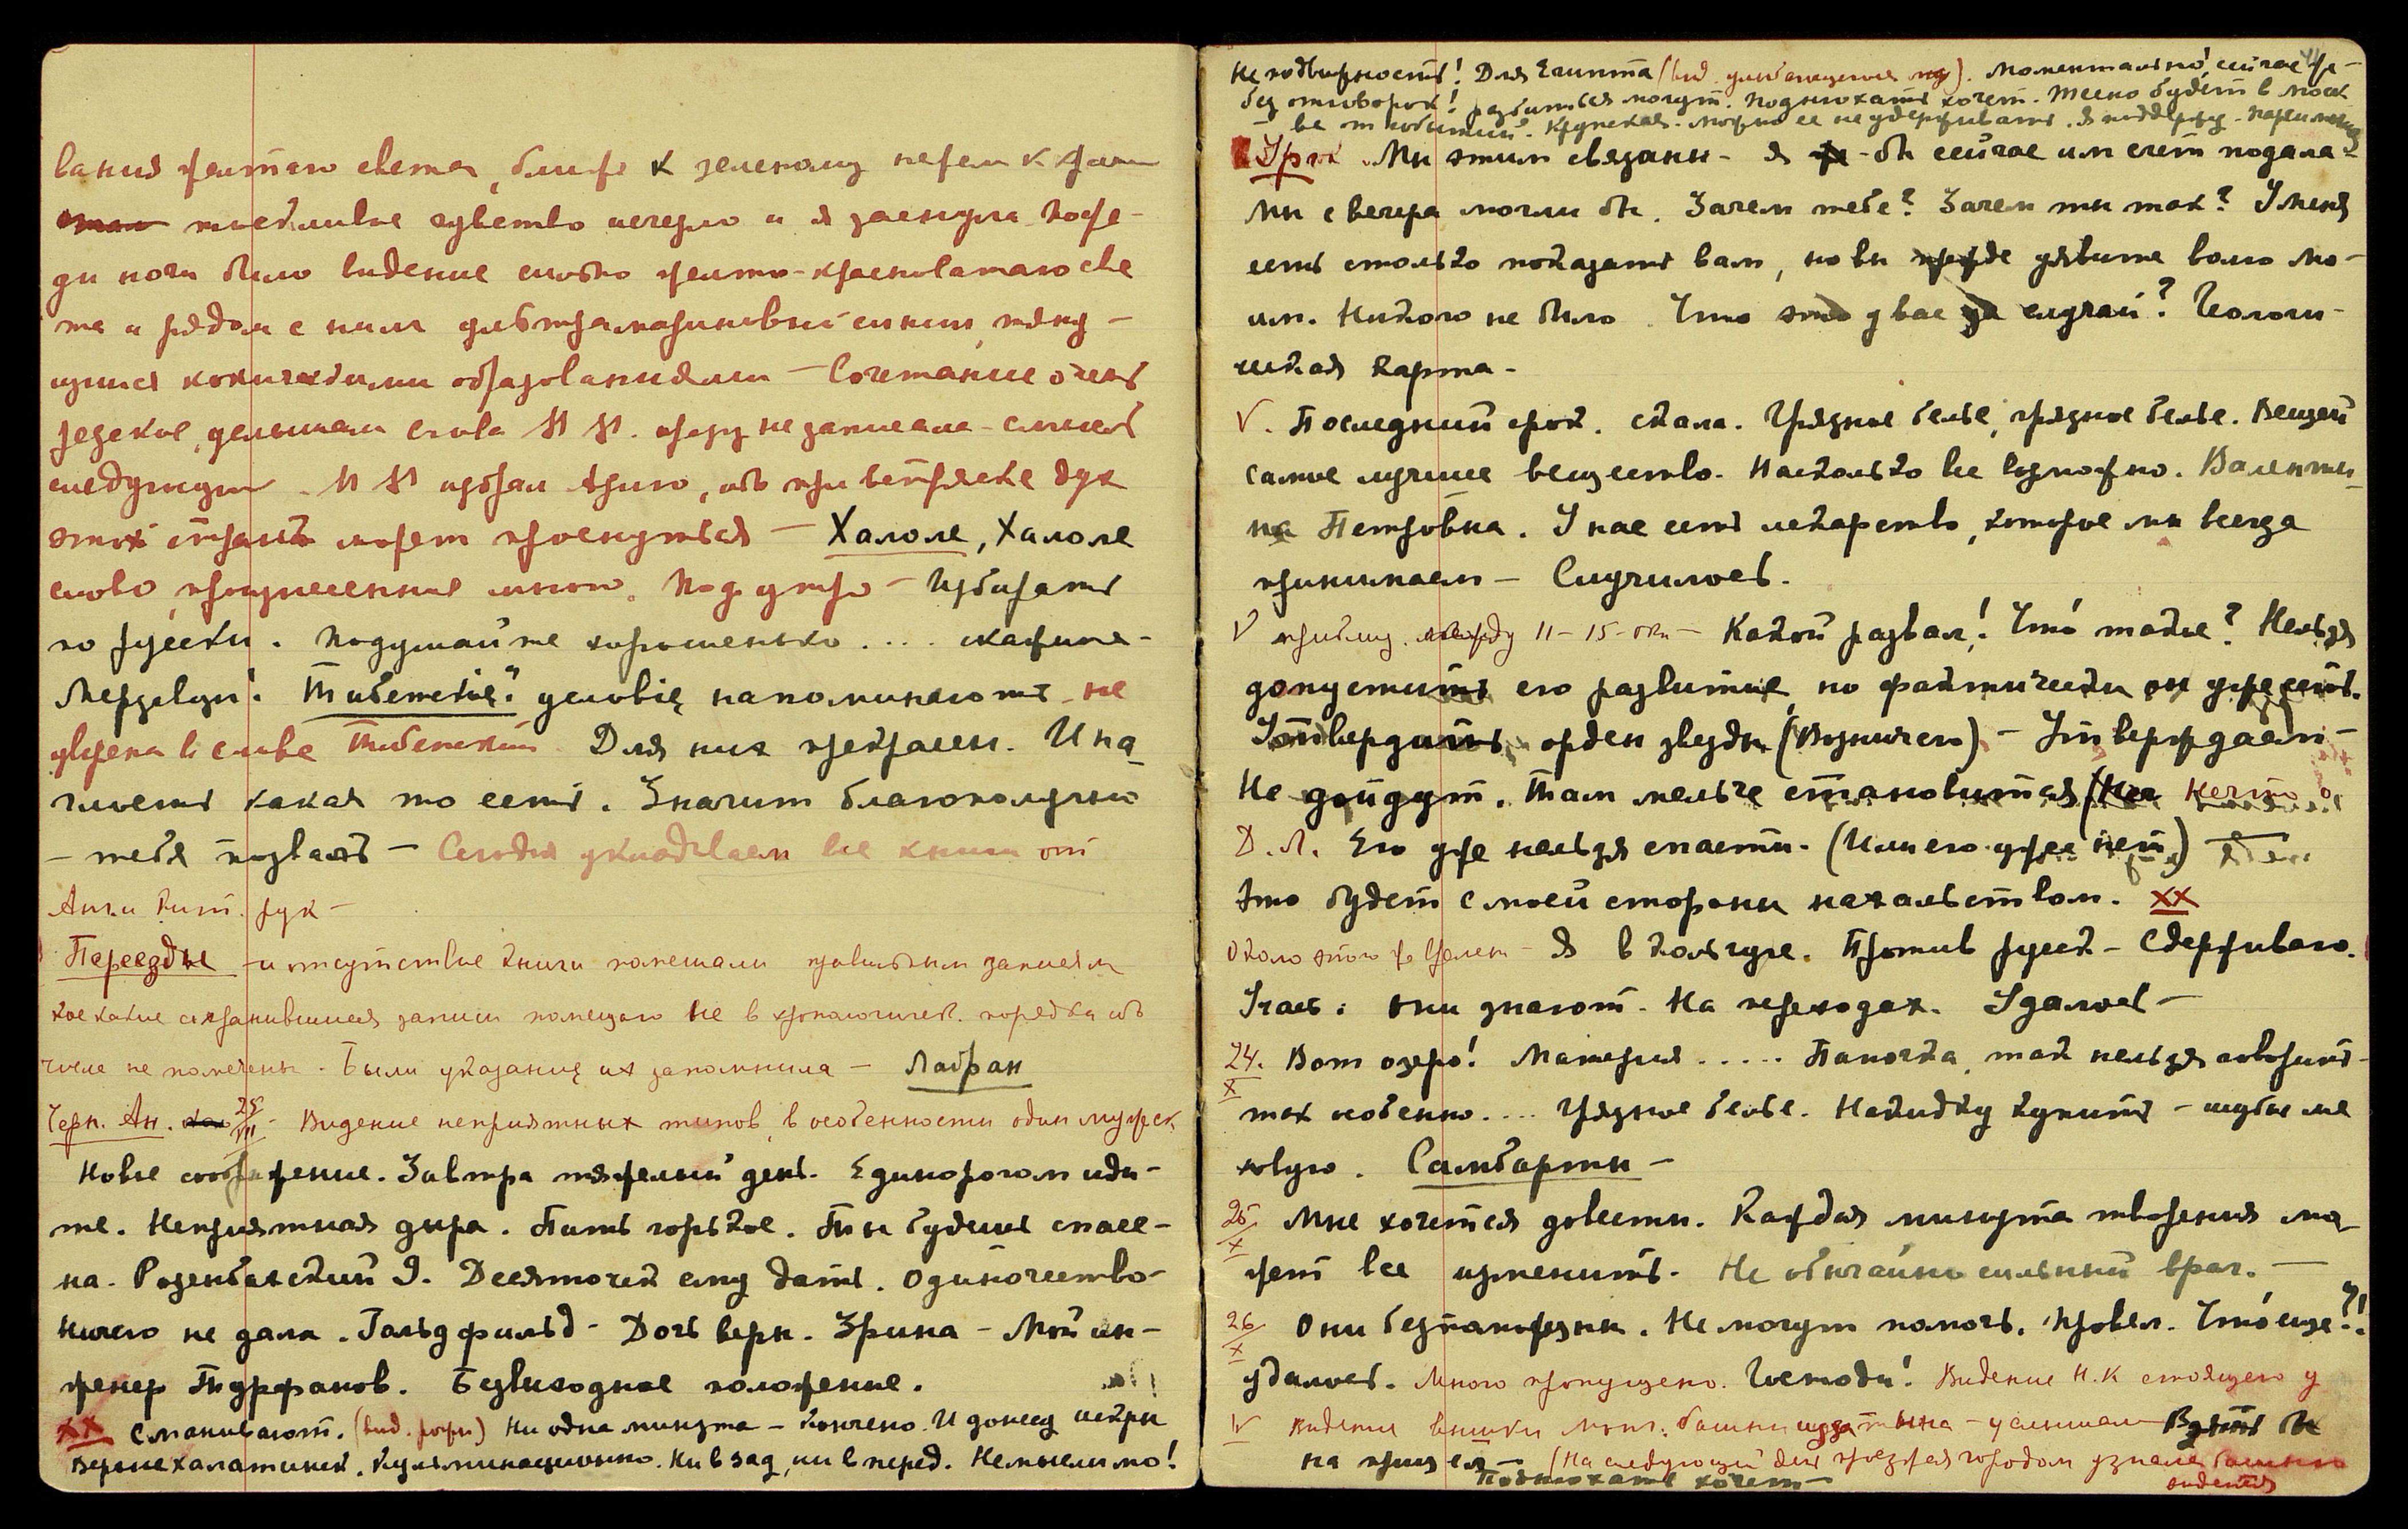 вания желтаго света, ближе к зеленому нежели к
тоскливое чувство исчезло и я заснула. Посре-
ди ночи было видение снова желто-красноватаго све
та и рядом с ним ультрамариновый синий, тяну-
щийся коническими образованиями — Сочетание очень
резкое, услышала слова М М. сразу не записала - смысл
следующий - М М избрал Азию, ибо при встряске дух
этой страны может проснуться — Халоле, Халоле
слово, произнесенное мною. Под утро — Избирать
по русски. Подумайте хорошенько ....
Мерзавцы! "Тибетские" условия напоминают не
уверена в слове Тибетский. Для них прекрасен. И на
какая то есть. Значит благополучно
— тебя позвать — Сегодня укладываем все книги от
рук —
Переезды - и отсутствие книги помешали правильным записям
кое какие сохранившиеся записи помещаю не в хронологичес. порядке ибо
числа не помечены. Были указания их запомнила — Лабран
Черн. Ан. 25/VII - Видение неприятных типов, в особенности один мужск.
Новое сооружение. Завтра тяжелый день. Единорогом иди-
те. Неприятная дыра. Пить горькое. Ты будешь спасе-
на. Десяточек ему дать. Одиночество-
Ничего не дала. Гольдфильд - Дочь верн. Зрина - Мой ин-
женер Турфанов. Безвыходное положение.
XX Сманивают. (вид. рожи) Ни одна минута — Кончено. И донесу искры
Кульминационно. Ни взад, ни вперед. Немыслимо!
Не подвижность! Для Египта (вид. ). Моментально, сейчас же -
без отговорок! разбиться могут. Поднюхать хочет. Тесно будет в Моск
ве от событий. Крупская. Можно ее не удерживать. Я поддержу.
Урок. Мы этим связаны - Я бы сейчас им счет подала-
Мы с вечера могли бы. Зачем тебе? Зачем ты так? У меня
есть столько показать вам, но вы прежде уявите волю мо-
им. Никого не было. Что это у вас за случай? Геологи-
ческая карта -
V. Последний срок. скала. Грязное белье, грязное белье. Вещей
самое лучшее вещество. Настолько все возможно. Валенти-
на Петровна. У нас есть лекарство, которое мы всегда
принимаем — Случилось.
V приблиз. между 11 - 15-ым — Какой развал! Что такое? Нельзя
допустить его развитие, но фактически он уже есть.
Утвердить орден звезды (Возничего) - Утверждаем -
Не дойдут. Там мельче становится (Нечто о
Д. Л. Его уже нельзя спасти. (Или его уже нет)
Это будет с моей стороны нахальством. XX
Около этого же времени — Я в кольчуге. Против русск - Сдерживаю.
Учась: они знают. На переходах. Удалось —
24/X. Вот озеро! Материя ..... Папочка, так нельзя говорить-
так особенно.... Грязное белье. Накидку купить - шубы не
новую. Самбарты —
25/X Мне хочется довести. Каждая минута творения мо
жет все изменить. Не обычайно сильный враг. —
26/X Они безнадежны. Не могут помочь. Провел. Что еще?!
удалось. Много пропущено. Господи! Видение Н.К стоящего у
V Видение монг. башни изза тына — услышала Взять бы
на прицел — (На следующий день проезжая городом узнала башню
Поднюхать хочет — видения